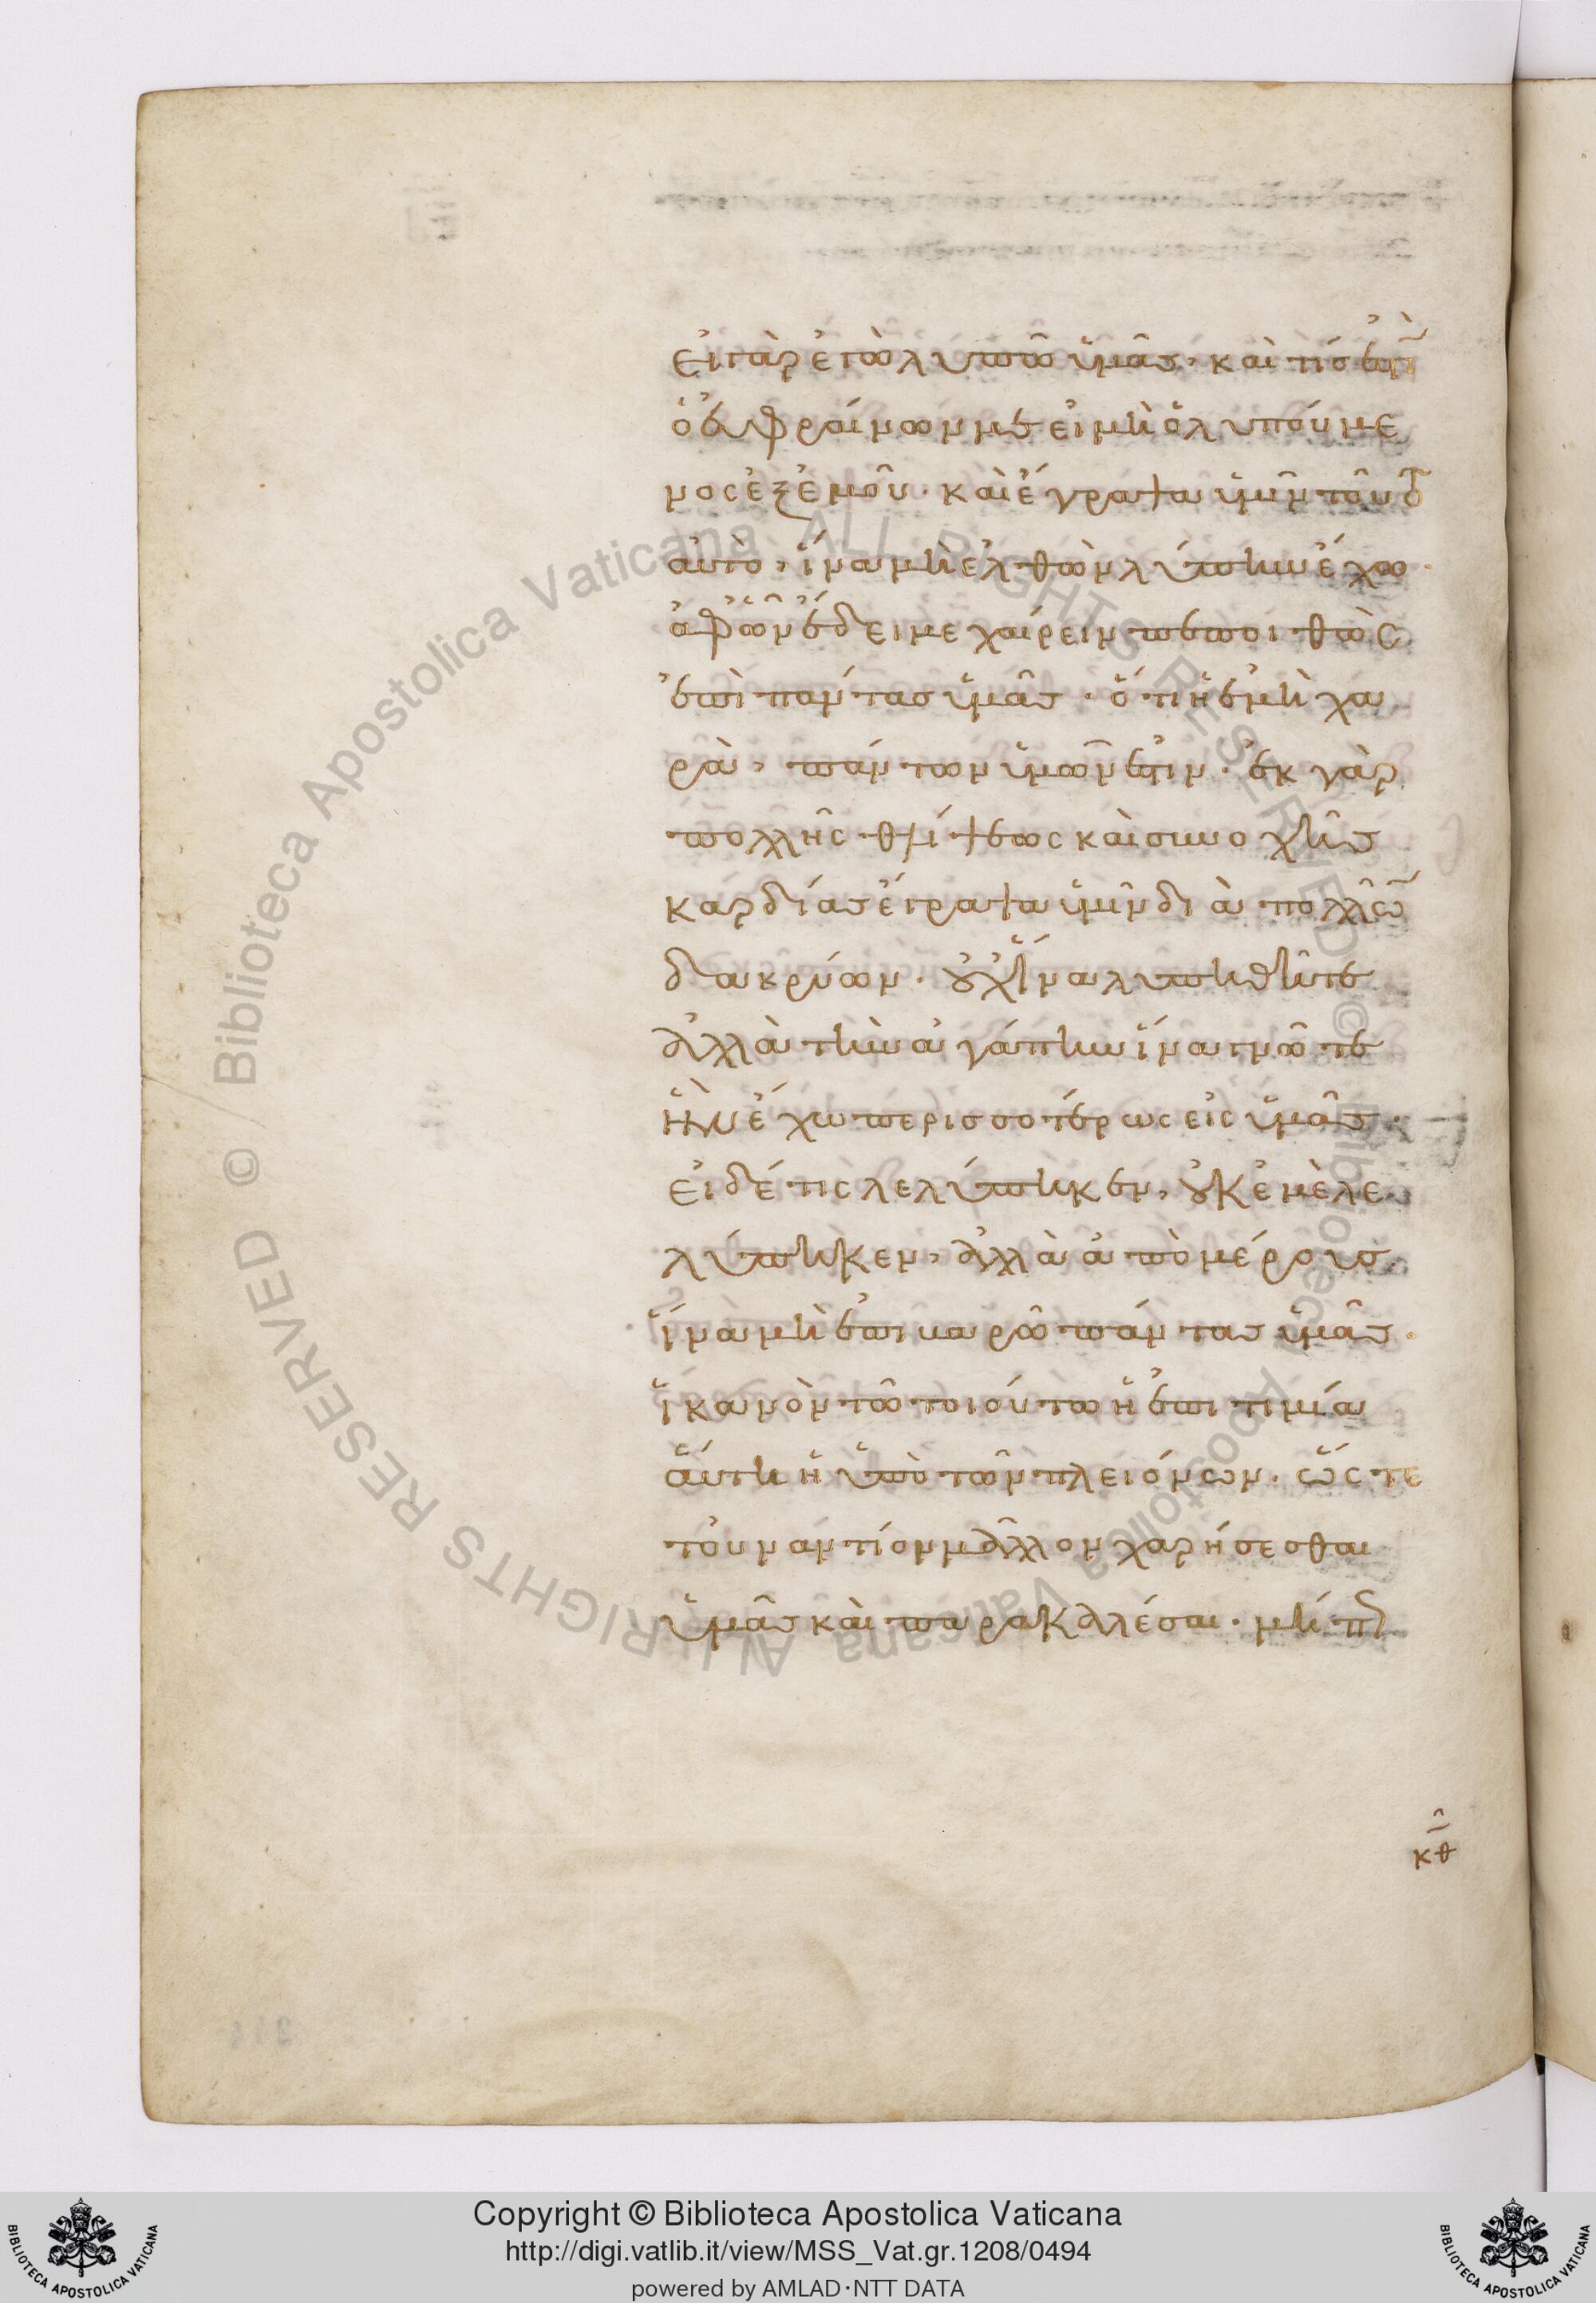 εἰ γὰρ ἐγὼ λυπῶ ὑμᾶς, καὶ τίς ἐστὶ(ν)
ὁ εὐφραίνων με εἰ μὴ ὁ λυπούμε
νος ἐξ ἐμοῦ· καὶ ἔγραψα ὑμῖν τοῦτο
αὐτὸ, ἵνα μὴ ἐλθὼν λύπην ἔχω
ἀφ' ὧν ἔδει με χαίρειν πεποιθὼς
ἐπὶ πάντας ὑμᾶς· ὅτι ἡ ἐμὴ χα
ρὰ, πάντων ὑμῶν ἐστιν· ἐκ γὰρ
πολλῆς θλίψεως καὶ συνοχῆς
καρδίας ἔγραψα ὑμῖν διὰ πολλῶ(ν)
δακρύων· οὐχ ἵνα λυπηθῆτε
ἀλλὰ τὴν ἀγάπην ἵνα γνῶτε
ἣν ἔχω περισσοτέρως εἰς ὑμᾶς·
εἰ δέ τις λελύπηκεν, οὐκ ἐμὲ λε
λύπηκεν, ἀλλὰ ἀπὸ μέρους
ἵνα μὴ ἐπιβαρῶ πάντας ὑμᾶς·
ἱκανὸν τῶ τοιούτω ἡ ἐπιτιμία
αὕτη ἡ ὑπὸ τῶν πλειόνων· ὥς τε
τοὐναντίον μᾶλλον χαρήσεσθαι
ὑμᾶς καὶ παρακαλέσαι· μή π(ως)
κθ
Copyright © Biblioteca Apostolica Vaticana
http://digi.vatlib.it/view/MSS_Vat.gr.1208/0494
powered by AMLAD·NTT DATA
BIBLIOTECA APOSTOLICA VATICANA
BIBLIOTECA APOSTOLICA VATICANA
© Biblioteca Apostolica Vaticana ALL RIGHTS RESERVED © Biblioteca Apostolica Vaticana ALL RIGHTS RESERVED